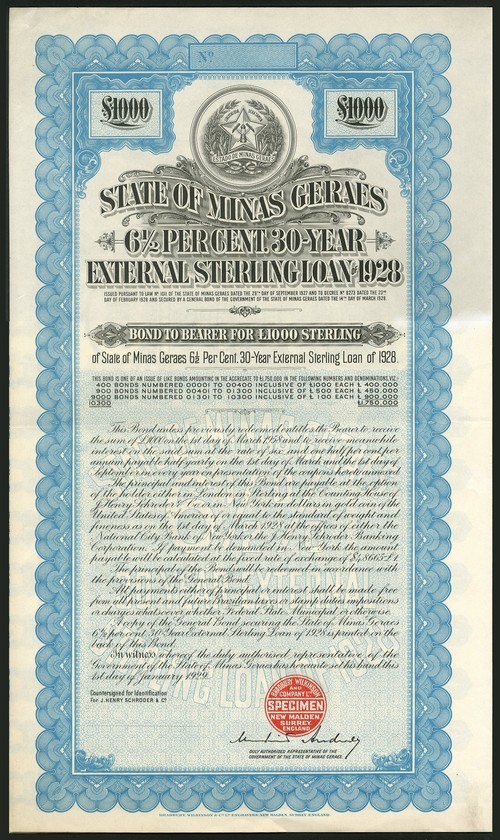 Nº
£1000
£1000
ESTADO DE MINAS GERAES
STATE OF MINAS GERAES
6½ PER CENT. 30-YEAR
EXTERNAL STERLING LOAN OF 1928
ISSUED PURSUANT TO LAW Nº 1011 OF THE STATE OF MINAS GERAES DATED THE 20TH DAY OF SEPTEMBER 1927 AND TO DECREE Nº 8273 DATED THE 23RD
DAY OF FEBRUARY 1928 AND SECURED BY A GENERAL BOND OF THE GOVERNMENT OF THE STATE OF MINAS GERAES DATED THE 14TH DAY OF MARCH 1928
BOND TO BEARER FOR £1000 STERLING
of State of Minas Geraes 6½ Per Cent. 30-Year External Sterling Loan of 1928.
THIS BOND IS ONE OF AN ISSUE OF LIKE BONDS AMOUNTING IN THE AGGREGATE TO £1,750,000 IN THE FOLLOWING NUMBERS AND DENOMINATIONS, VIZ:-
400 BONDS NUMBERED 00001 TO 00400 INCLUSIVE OF £1,000 EACH £ 400,000
900 BONDS NUMBERED 00401 TO 01300 INCLUSIVE OF £ 500 EACH £ 450,000
9000 BONDS NUMBERED 01301 TO 10300 INCLUSIVE OF £ 100 EACH £ 900,000
10,300 £1,750,000
This Bond unless previously redeemed entitles the Bearer to receive
the sum of £1,000 on the 1st day of March 1958 and to receive meanwhile
interest on the said sum at the rate of six and one half per cent per
annum payable half yearly on the 1st day of March and the 1st day of
September in every year on presentation of the coupons hereto annexed.
The principal and interest of this Bond are payable at the option
of the holder either in London in Sterling at the Counting House of
J. Henry Schröder & Co. or in New York in dollars in gold coin of the
United States of America of or equal to the standard of weight and
fineness as on the 1st day of March 1928 at the offices of either the
National City Bank of New York or the J. Henry Schroder Banking
Corporation. If payment be demanded in New York the amount
payable will be calculated at the fixed rate of exchange of $4.8665=£1.
The principal of the Bonds will be redeemed in accordance with
the provisions of the General Bond.
All payments either of principal or interest shall be made free
from all present and future Brazilian taxes or stamp duties impositions
or charges whatsoever whether Federal State Municipal or otherwise.
A copy of the General Bond securing the State of Minas Geraes
6½ per cent. 30-Year External Sterling Loan of 1928 is printed on the
back of this Bond.
In witness whereof the duly authorised representative of the
Government of the State of Minas Geraes has hereunto set his hand this
1st day of January 1929.
Countersigned for Identification
For J. HENRY SCHRÖDER & Cº
BRADBURY WILKINSON
AND
COMPANY Lº
SPECIMEN
NEW MALDEN
SURREY
ENGLAND
DULY AUTHORISED REPRESENTATIVE OF THE
GOVERNMENT OF THE STATE OF MINAS GERAES.
BRADBURY, WILKINSON & Cº Lº ENGRAVERS, NEW MALDEN, SURREY, ENGLAND.